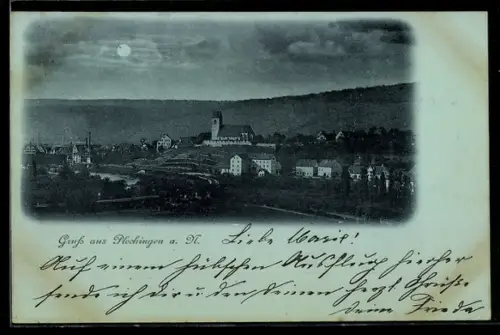 Gruß aus Plochingen a. N.
Liebe Marie!
Auf einem hübschen Ausflug hierher
sende ich dir u. den deinen herzl. Grüsse
deine Frieda